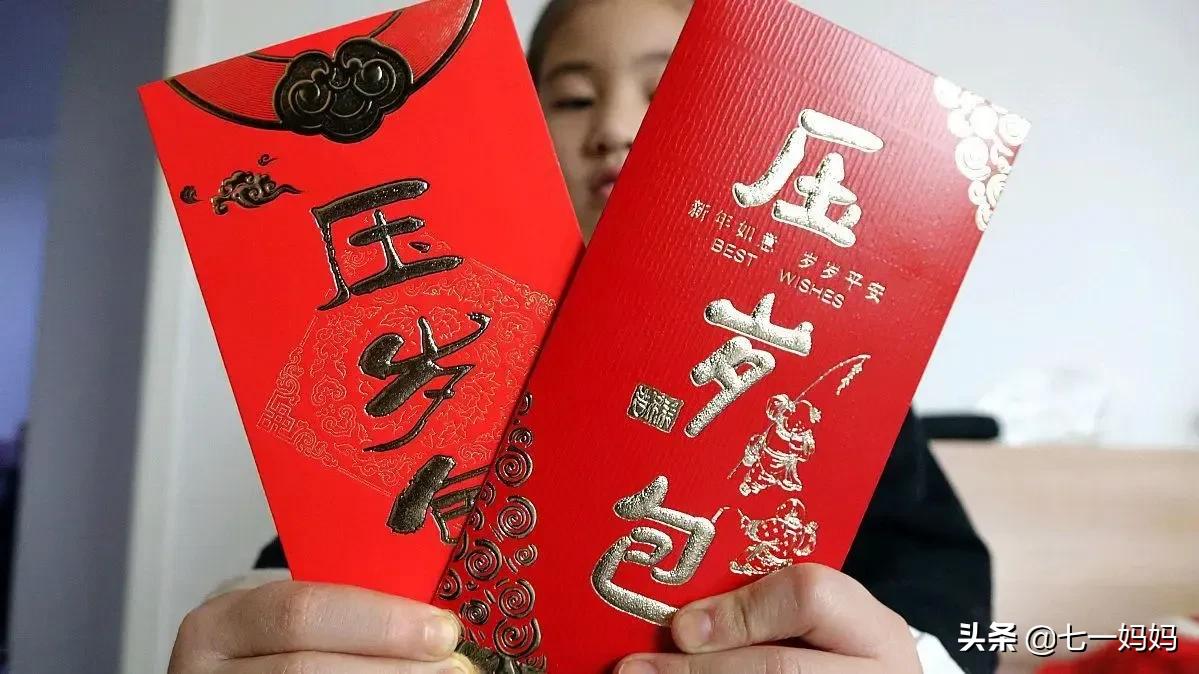 压岁包
压岁包
新年如意 岁岁平安
BEST WISHES
头条 @七一妈妈